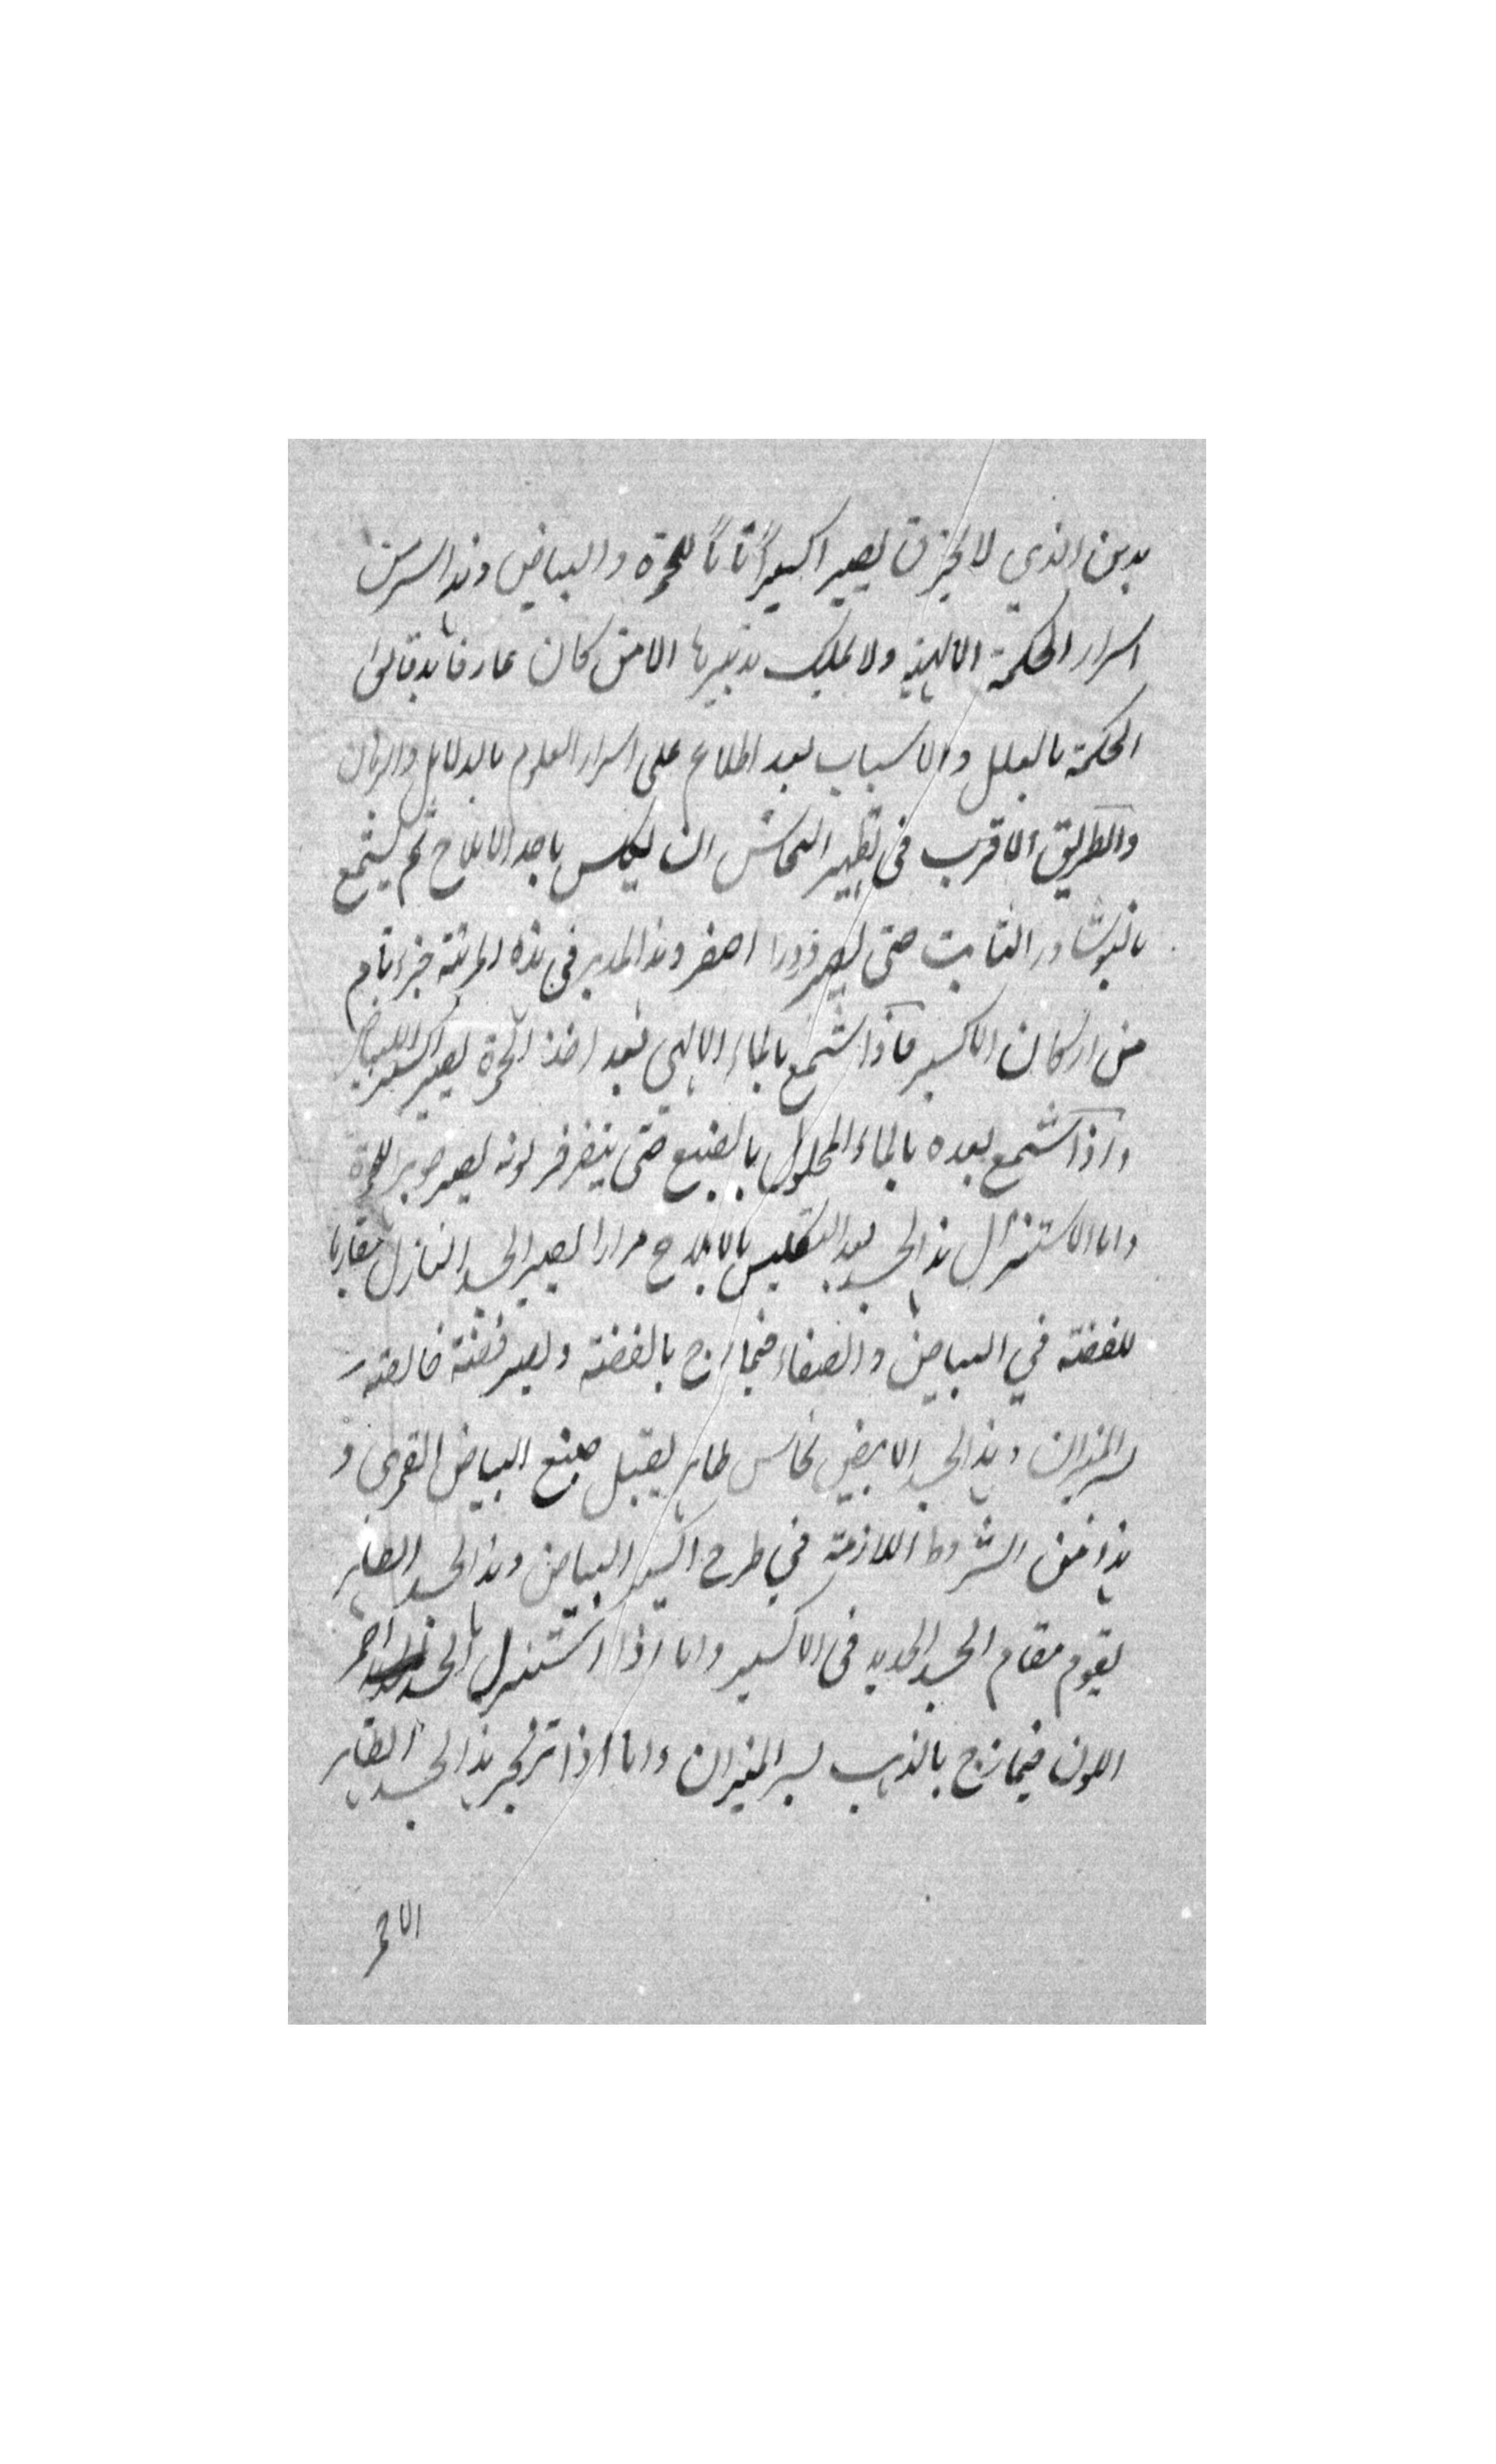 بدهن الذي لا يحترق يصير اكسيراً تاماً للحمرة والبياض وهذا سر من
اسرار الحكمة الالهية ولا يملك تدبيرها الا من كان عارفا بدقائق
الحكمة بالعلل والاسباب بعد اطلاع على اسرار العلوم بالدلايل والبرهان
والطريق الاقرب في تطهير النحاس ان يكلس باحد الاملاح ثم يشمع
بالنوشادر الثابت حتى يصير زورا اصفر وهذا المدبر في هذه المرتبة جزء تام
من اركان الاكسير فاذا شمع بالماء الالهي بعد اخذ الحمرة يصير اكسير البياض
واذا شمع بعده بالماء المحلول بالصبغ حتى يتفرفر لونه يصير جوهر للحمرة
واما الاستنزال هذا الجسد بعد التكليس بالاملاح مرارا يصير الجسد النازل مقاربا
للفضة في البياض والصفاء فيمازج بالفضة ويصير فضة خالصة
بسر الميزان وهذا الجسد الابيض نحاس طاهر يقبل صبغ البياض القمرى و
هذا من الشروط اللازمة في طرح اكسير البياض وهذا الجسد الطاهر
يقوم مقام الجسد الجديد في الاكسير واما اذا استنزل هذا الجسد احمر
اللون فيمازج بالذهب بسر الميزان واما اذا تزنجر هذا الجسد الطاهر
الاحمر